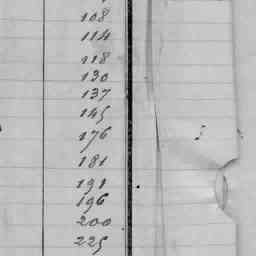 108
114
118
130
137
145
176
181
191
196
200
225